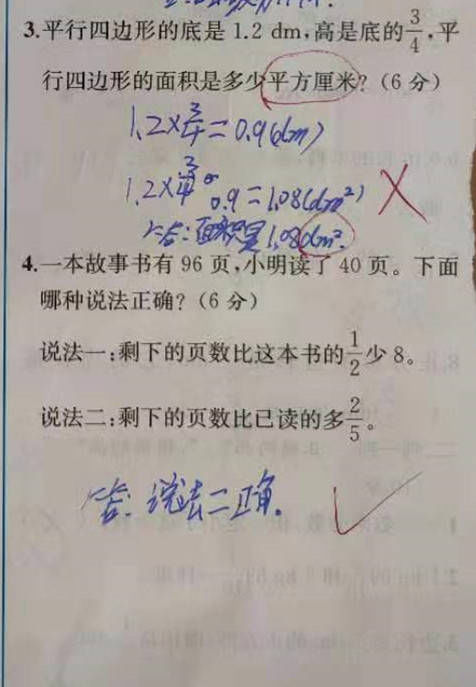 3.平行四边形的底是1.2 dm,高是底的3/4,平
行四边形的面积是多少平方厘米?(6分)
1.2×3/4=0.9(dm)
0.9=1.08(dm²)
答:面积是1.08dm².
4.一本故事书有96页,小明读了40页。下面
哪种说法正确?(6分)
说法一:剩下的页数比这本书的1/2少8。
说法二:剩下的页数比已读的多2/5。
答:说法二正确.